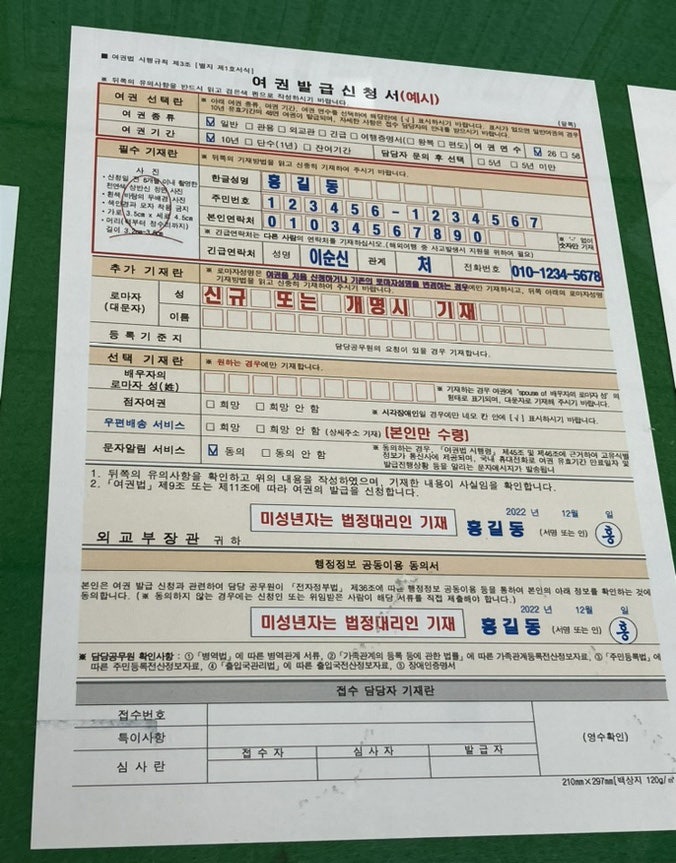 ■ 여권법 시행규칙 제3조 [별지 제1호서식]
여권발급신청서(예시)
※ 뒤쪽의 유의사항을 반드시 읽고 검은색 펜으로 작성하시기 바랍니다. (앞쪽)
여권 선택란 ※ 아래 여권 종류, 여권 기간, 여권 면수를 선택하여 해당란에 [√] 표시하시기 바랍니다. 표시가 없으면 일반여권의 경우
10년 유효기간의 48면 여권이 발급되며, 자세한 사항은 접수 담당자의 안내를 받으시기 바랍니다.
여권 종류 ☑ 일반 □ 관용 □ 외교관 □ 긴급 □ 여행증명서(□ 왕복 □ 편도) 여권 면수 ☑ 26 □ 58
여권 기간 ☑ 10년 □ 단수(1년) □ 잔여기간 담당자 문의 후 선택 □ 5년 □ 5년 미만
필수 기재란 ※ 뒤쪽의 기재방법을 읽고 신중히 기재하여 주시기 바랍니다.
사 진
• 신청일 전 6개월 이내 촬영한
천연색 상반신 정면 사진
• 흰색 바탕의 무배경 사진
• 색안경과 모자 착용 금지
• 가로 3.5cm x 세로 4.5cm
• 머리(턱부터 정수리까지)
길이 3.2cm-3.6cm
한글성명 홍 길 동
주민번호 1 2 3 4 5 6 - 1 2 3 4 5 6 7
본인연락처 0 1 0 3 4 5 6 7 8 9 0 ※ '-' 없이 숫자만 기재
※ 긴급연락처는 다른 사람의 연락처를 기재하십시오.(해외여행 중 사고발생시 지원을 위하여 필요)
긴급연락처 성명 이순신 관계 처 전화번호 010-1234-5678
추가 기재란 ※ 로마자성명은 여권을 처음 신청하거나 기존의 로마자성명을 변경하는 경우에만 기재하시고, 뒤쪽 아래의 로마자성명
기재방법을 읽고 신중히 기재하여 주시기 바랍니다.
로마자 (대문자) 성 신규 또는 개명시 기재
이름
등록기준지 담당공무원의 요청이 있을 경우 기재합니다.
선택 기재란 ※ 원하는 경우에만 기재합니다.
배우자의 로마자 성(姓) ※ 기재하는 경우 여권에 'spouse of 배우자의 로마자 성' 의
형태로 표기되며, 대문자로 기재해 주시기 바랍니다.
점자여권 □ 희망 □ 희망 안 함 ※ 시각장애인일 경우에만 네모 칸 안에 [√] 표시하시기 바랍니다.
우편배송 서비스 □ 희망 □ 희망 안 함 (상세주소 기재) [본인만 수령)
문자알림 서비스 ☑ 동의 □ 동의 안 함 ※ 동의하는 경우, 「여권법 시행령」 제45조 및 제46조에 근거하여 고유식별
정보가 통신사에 제공되며, 국내 휴대전화로 여권 유효기간 만료일자 및
발급진행상황 등을 알리는 문자메시지가 발송됩니
1. 뒤쪽의 유의사항을 확인하고 위의 내용을 작성하였으며, 기재한 내용이 사실임을 확인합니다.
2. 「여권법」제9조 또는 제11조에 따라 여권의 발급을 신청합니다.
2022 년 12월 일
미성년자는 법정대리인 기재 홍길동 (서명 또는 인) 홍
외교부장관 귀하
행정정보 공동이용 동의서
본인은 여권 발급 신청과 관련하여 담당 공무원이 「전자정부법」 제36조에 따른 행정정보 공동이용 등을 통하여 본인의 아래 정보를 확인하는 것에
동의합니다. (※ 동의하지 않는 경우에는 신청인 또는 위임받은 사람이 해당 서류를 직접 제출해야 합니다.)
2022 년 12월 일
미성년자는 법정대리인 기재 홍길동 (서명 또는 인) 홍
※ 담당공무원 확인사항 : ①「병역법」에 따른 병역관계 서류, ②「가족관계의 등록 등에 관한 법률」에 따른 가족관계등록전산정보자료, ③「주민등록법」에
따른 주민등록전산정보자료, ④「출입국관리법」에 따른 출입국전산정보자료, ⑤ 장애인증명서
접수 담당자 기재란
접수번호
특이사항 (영수확인)
심사란 접수자 심사자 발급자
210mm×297mm[백상지 120g/㎡